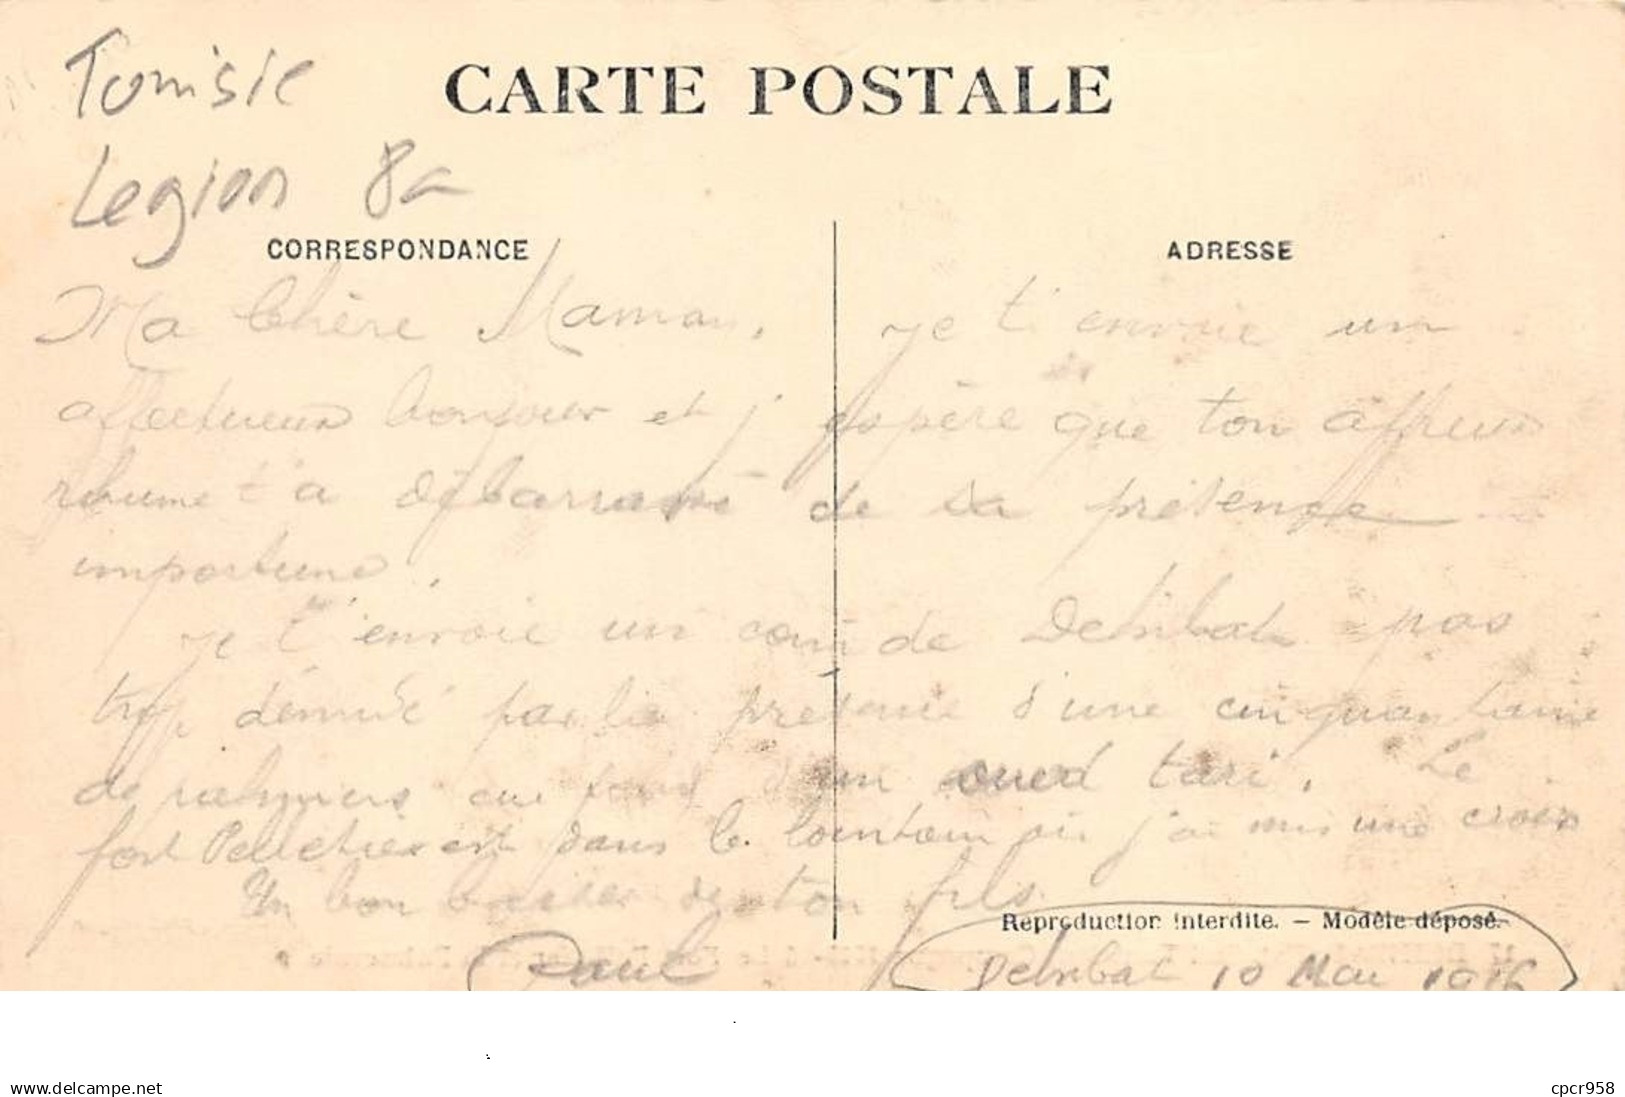 Tunisie
CARTE POSTALE
Legion 8c
CORRESPONDANCE
ADRESSE
Ma Chère Maman, je t'envoie un
affectueux bonjour et j'espère que ton affreux
rhume t'a débarrassé de sa présence
importune.
je t'envoie un coin de Dehibat pas
trop dénudé par la présence d'une cinquantaine
de palmiers au fond d'un oued tari. Le
fort Pelletier est dans le lointain où j'ai mis une croix
Un bon baiser de ton fils
Reproduction interdite. — Modèle déposé.
Paul
Dehibat 10 Mai 1916
www.delcampe.net
cpcr958